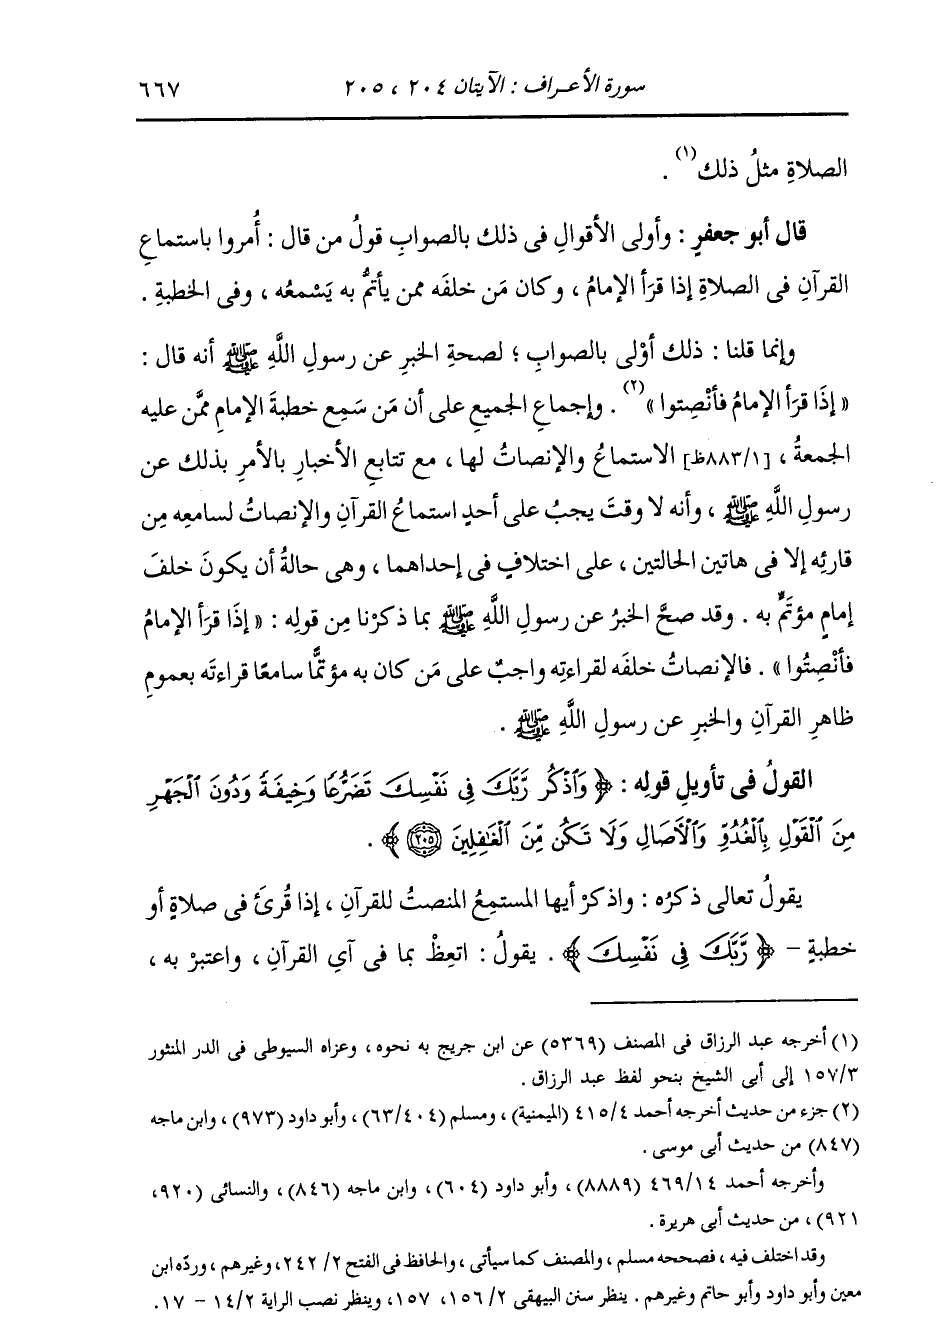 سورة الأعراف : الآيتان ٢٠٤ ، ٢٠٥ ٦٦٧
الصلاةِ مثلُ ذلك(١) .
قال أبو جعفرٍ : وأولى الأقوالِ فى ذلك بالصوابِ قولُ من قال : أُمروا باستماعِ
القرآنِ فى الصلاةِ إذا قرَأ الإمامُ ، وكان مَن خلفَه ممن يأتمُّ به يَسْمعُه ، وفى الخطبةِ .
وإنما قلنا : ذلك أوْلى بالصوابِ ؛ لصحةِ الخبرِ عن رسولِ اللَّهِ ﷺ أنه قال :
« إذَا قرَأ الإمامُ فأنْصِتوا »(٢) . وإجماعِ الجميعِ على أن مَن سَمِع خطبةَ الإمامِ ممَّن عليه
الجمعةُ ، [٨٨٣/١ظ] الاستماعُ والإنصاتُ لها ، مع تتابعِ الأخبارِ بالأمرِ بذلك عن
رسولِ اللَّهِ ﷺ ، وأنه لا وقتَ يجبُ على أحدٍ استماعُ القرآنِ والإنصاتُ لسامعِه مِن
قارئِه إلا فى هاتين الحالتين ، على اختلافٍ فى إحداهما ، وهى حالةُ أن يكونَ خلفَ
إمامٍ مؤتَمٌّ به . وقد صحَّ الخبرُ عن رسولِ اللَّهِ ﷺ بما ذكرْنا مِن قولِه : « إذَا قرَأ الإمامُ
فأنْصِتُوا » . فالإنصاتُ خلفَه لقراءتِه واجبٌ على مَن كان به مؤتمًّا سامعًا قراءتَه بعمومِ
ظاهرِ القرآنِ والخبرِ عن رسولِ اللَّهِ ﷺ .
القولُ فى تأويلِ قولِه : ﴿ وَٱذْكُر رَّبَّكَ فِى نَفْسِكَ تَضَرُّعًا وَخِيفَةً وَدُونَ ٱلْجَهْرِ
مِنَ ٱلْقَوْلِ بِٱلْغُدُوِّ وَٱلْآصَالِ وَلَا تَكُن مِّنَ ٱلْغَـٰفِلِينَ ٢٠٥ ﴾ .
يقولُ تعالى ذكرُه : واذكرْ أيها المستمِعُ المنصتُ للقرآنِ ، إذا قُرئَ فى صلاةٍ أو
خطبةٍ - ﴿ رَّبَّكَ فِى نَفْسِكَ ﴾ . يقولُ : اتعِظْ بما فى آىِ القرآنِ ، واعتبرْ به ،
(١) أخرجه عبد الرزاق فى المصنف (٥٣٦٩) عن ابن جريج به نحوه ، وعزاه السيوطى فى الدر المنثور
١٥٧/٣ إلى أبى الشيخ بنحو لفظ عبد الرزاق .
(٢) جزء من حديث أخرجه أحمد ٤١٥/٤ (الميمنية) ، ومسلم (٦٣/٤٠٤) ، وأبو داود (٩٧٣) ، وابن ماجه
(٨٤٧) من حديث أبى موسى .
وأخرجه أحمد ٤٦٩/١٤ (٨٨٨٩) ، وأبو داود (٦٠٤) ، وابن ماجه (٨٤٦) ، والنسائى (٩٢٠ ،
٩٢١) ، من حديث أبى هريرة .
وقد اختلف فيه ، فصححه مسلم ، والمصنف كما سيأتى ، والحافظ فى الفتح ٢/ ٢٤٢ ، وغيرهم ، وردّه ابن
معين وأبو داود وأبو حاتم وغيرهم . ينظر سنن البيهقى ٢/ ١٥٦ ، ١٥٧ ، وينظر نصب الراية ١٤/٢ - ١٧ .